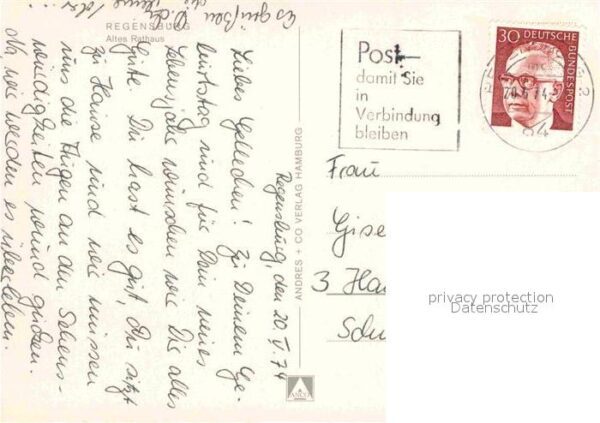 REGENSBURG
Altes Rathaus
Regensburg, den 20. V. 74
Liebes Gellechen! Zu Deinem Ge-
burtstag und für Dein neues
Lebensjahr wünschen wir Dir alles
Gute. Du hast es gut, Du sitzt
zu Hause und wir müssen
uns die Augen an den Sehens-
würdigkeiten wund gucken.
Na, wir werden es überleben.
Es grüßen Dich
ANDRES + CO VERLAG HAMBURG
ANCO
Post
damit Sie
in
Verbindung
bleiben
30
DEUTSCHE
BUNDESPOST
84
Frau
Gise
3 Han
Schu
privacy protection
Datenschutz